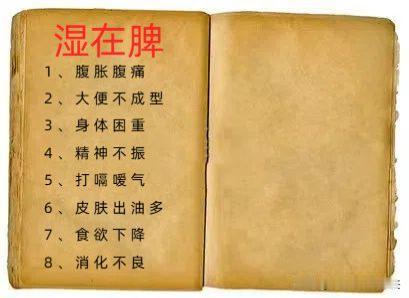 湿在脾
1、腹胀腹痛
2、大便不成型
3、身体困重
4、精神不振
5、打嗝嗳气
6、皮肤出油多
7、食欲下降
8、消化不良